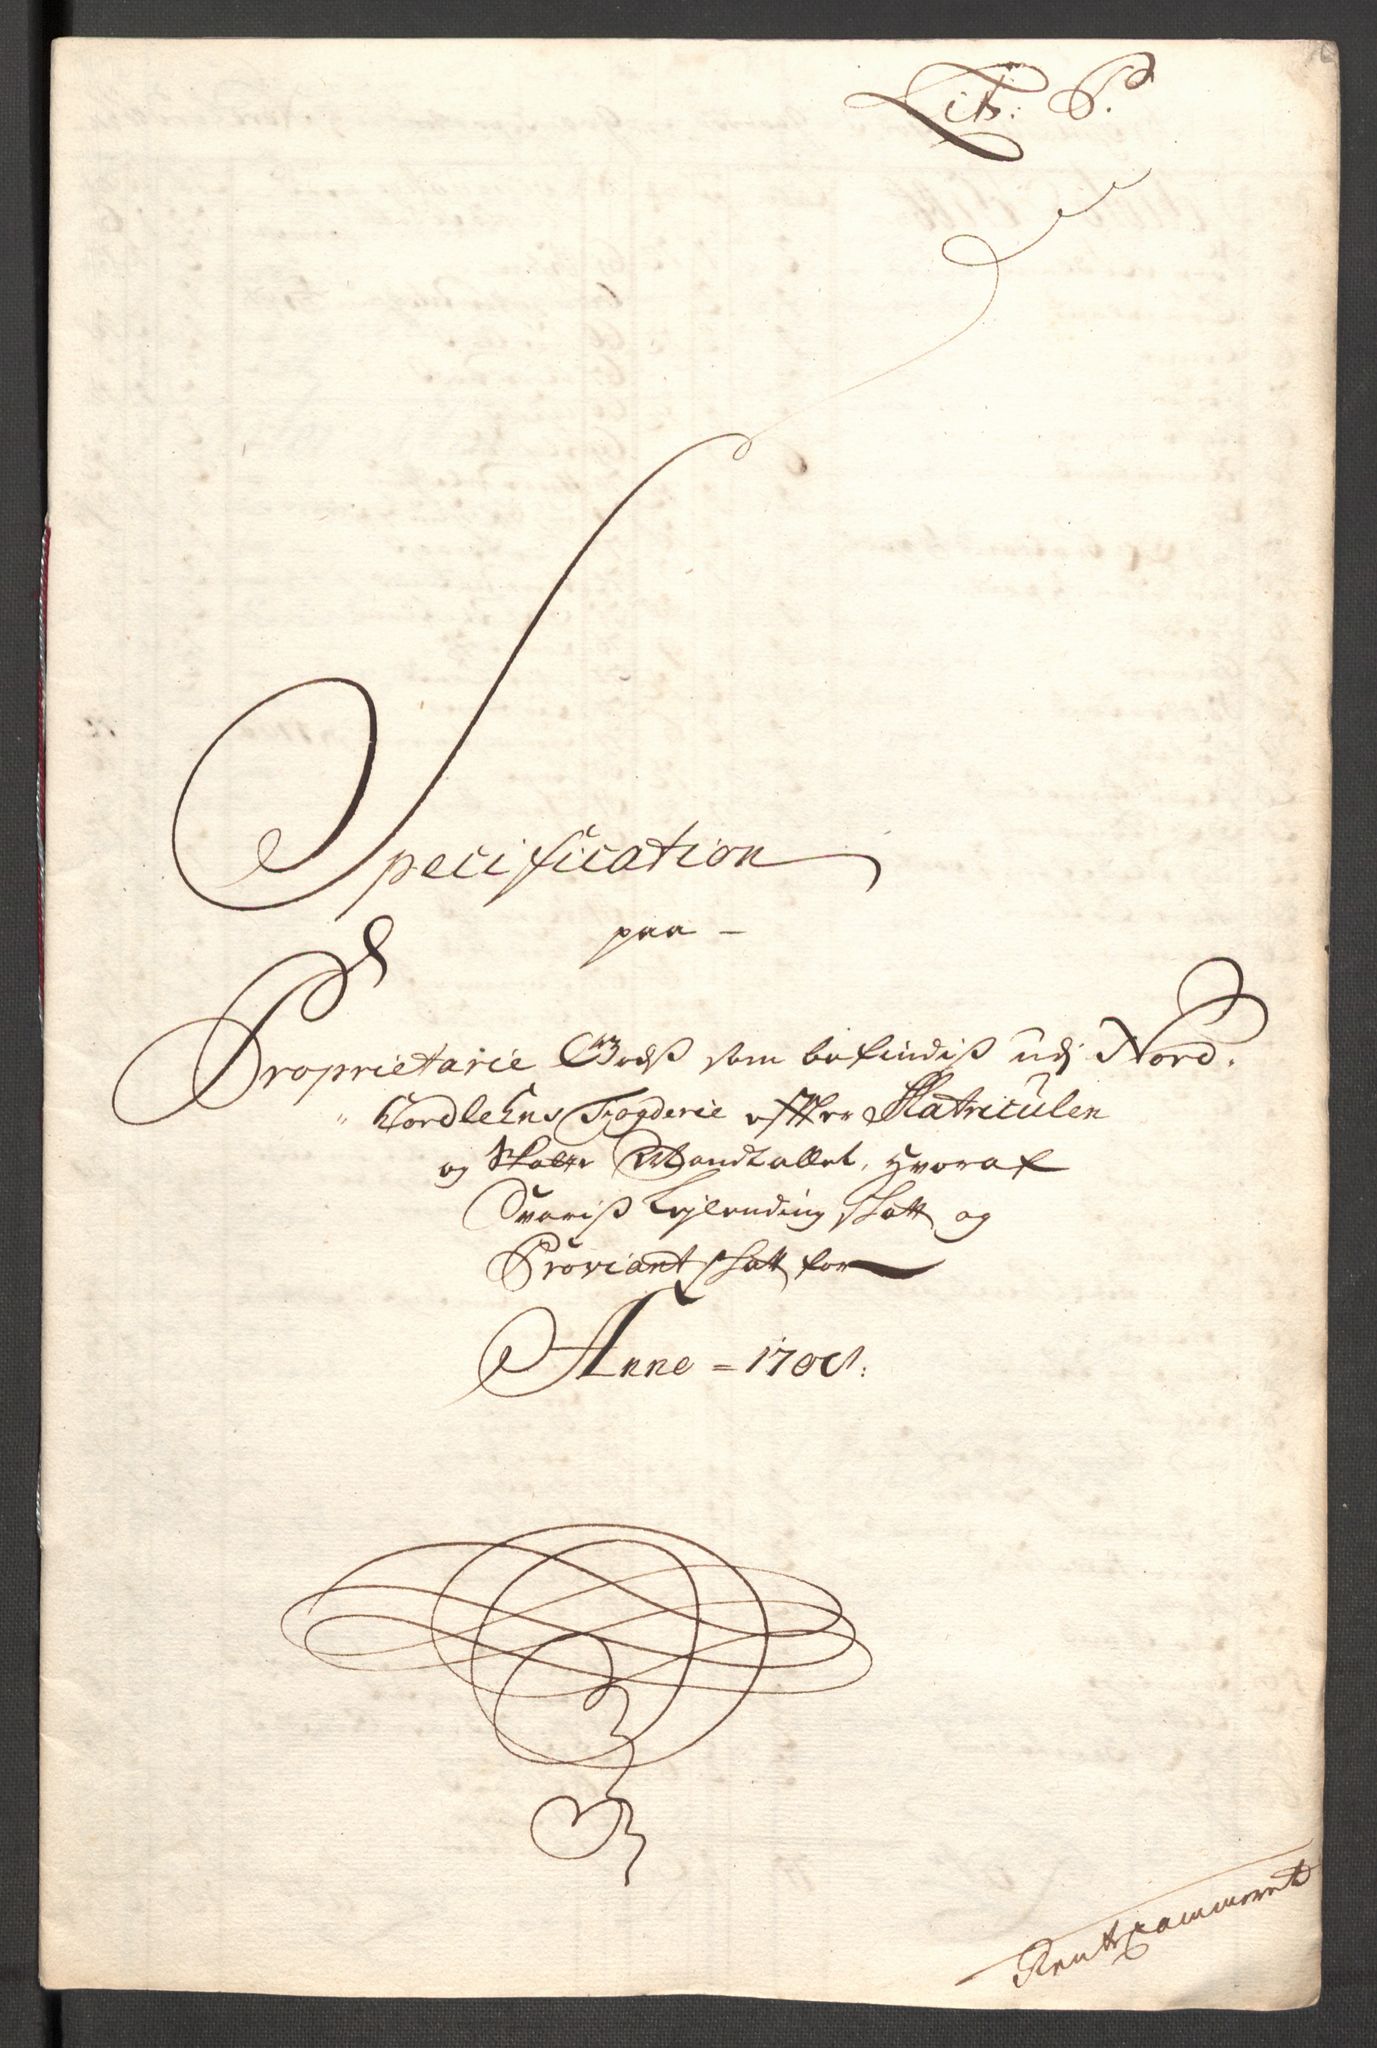 Lit: P.
Specification
paa –
Proprietarie Godß som befindiß udj Nord,
hordlehns Fogderie efter Matriculen
og Skatte Mandtallet, hvoraf
Svariß Leylending skatt og
Proviant skatt for
Anno = 1706:
Rentekammeret